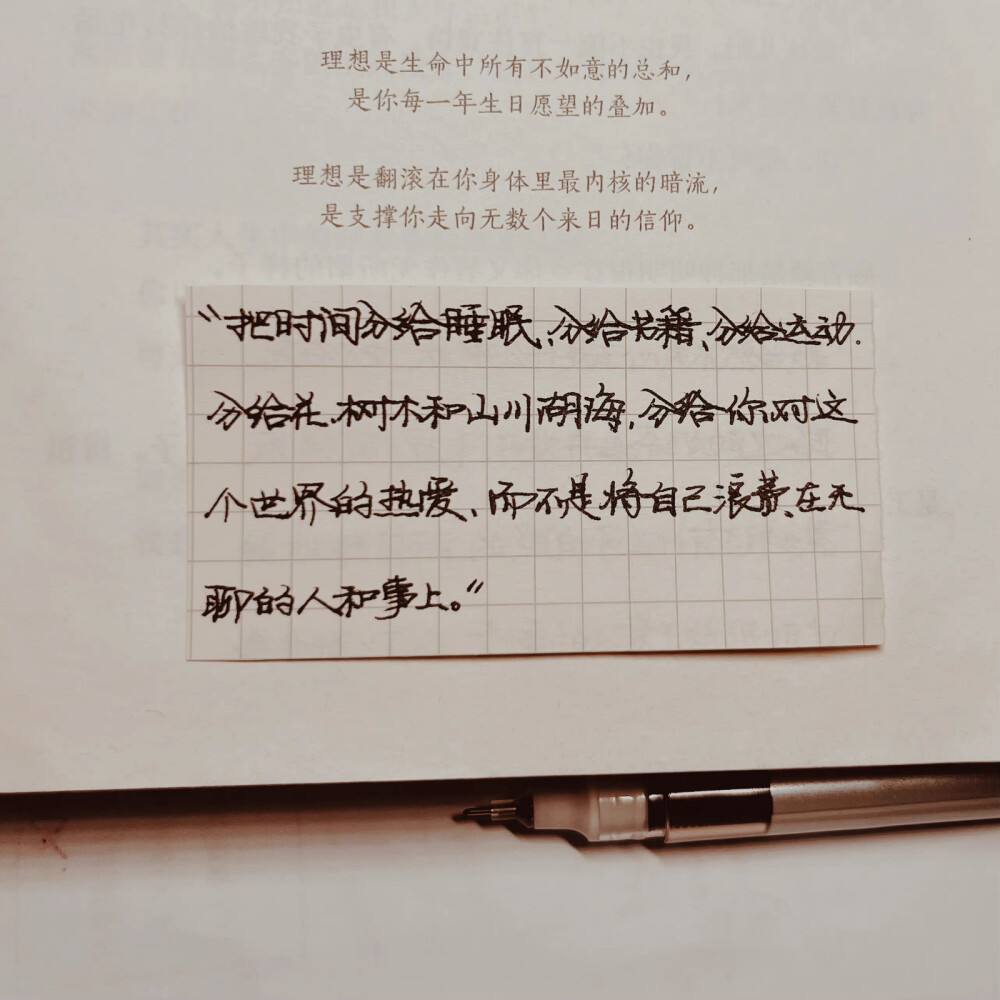 理想是生命中所有不如意的总和，
是你每一年生日愿望的叠加。
理想是翻滚在你身体里最内核的暗流，
是支撑你走向无数个来日的信仰。
“把时间分给睡眠、分给书籍、分给运动.
分给花、树木和山川湖海，分给你对这
个世界的热爱、而不是将自己浪费在无
聊的人和事上。”